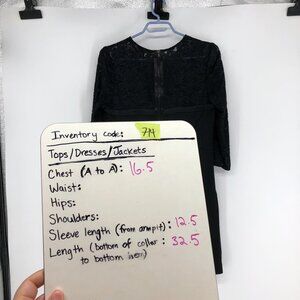 Inventory code: 714
Tops/Dresses/Jackets
Chest (A to A): 16.5
Waist:
Hips:
Shoulders:
Sleeve length (from armpit): 12.5
Length (bottom of collar : 32.5
to bottom hem)